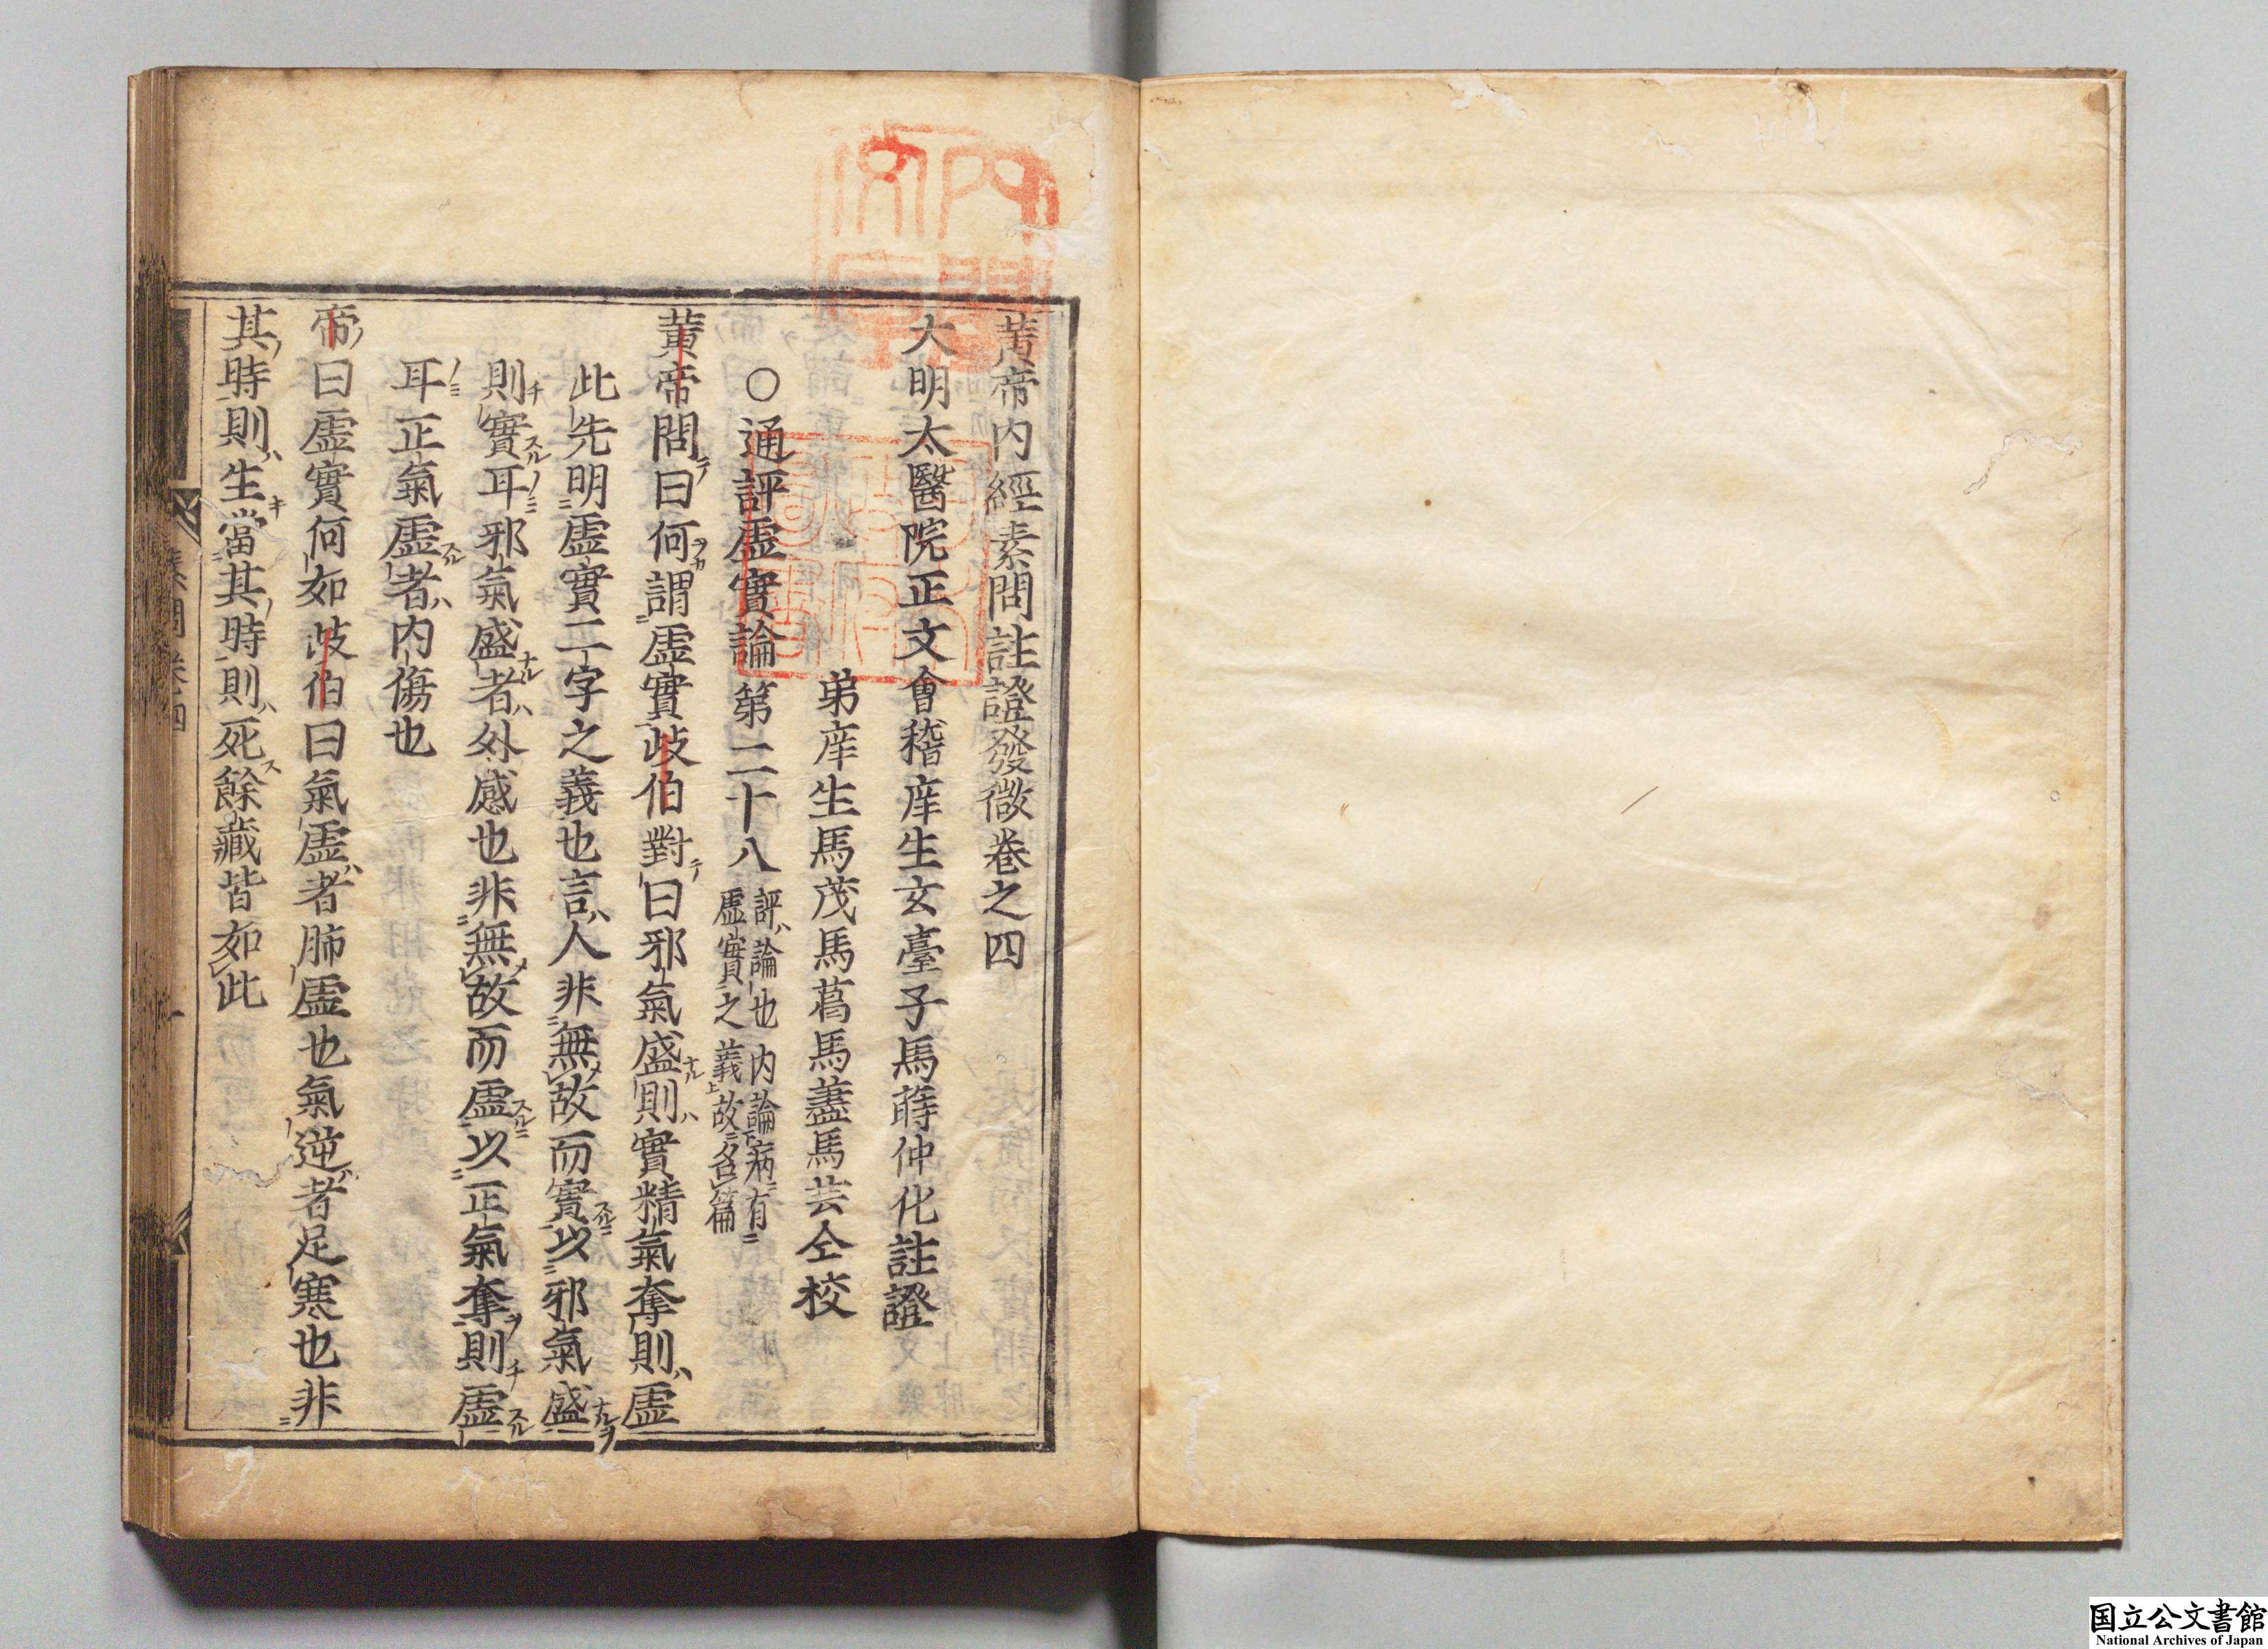 黃帝內經素問註證發微卷之四
大明太醫院正文會稽庠生玄臺子馬蒔仲化註證
弟庠生馬茂馬蒀馬藎馬芸仝校
○通評虛實論第二十八
評ハ論也內論病有
虛實之義故名篇
黃帝問曰何謂虛實歧伯對曰邪氣盛則實精氣奪則虛
此先明虛實二字之義也言人非無故而實以邪氣盛
則實耳邪氣盛者外感也非無故而虛以正氣奪則虛
耳正氣虛者內傷也
帝曰虛實何如歧伯曰氣虛者肺虛也氣逆者足寒也非
其時則生當其時則死餘藏皆如此
国立公文書館
National Archives of Japan